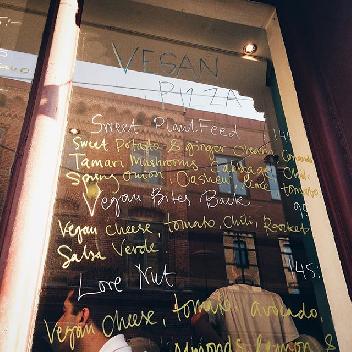 VEGAN
PIZZA
Sweet Plant Feed
Sweet Potato & ginger
Tamari Mushrooms, Cabbage, Chili,
Spring onion, Cashew, lime, tomato,
Vegan Bites Back
Vegan cheese, tomato, chili, Rocket
Salsa Verde
145.
Love Nut
Vegan cheese, tomato, avocado,
almonds, lemon &